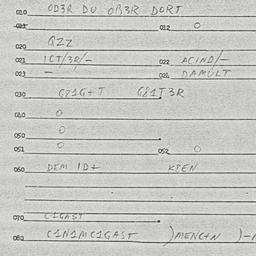 010 OD3R DU OB3R DORT
011 012 O
020 QZZ
021 1CT/3R/– 022 ACIND/–
023 – 024 DAMULT
030 G81G+T G81T3R
040 O
050 O
051 O 052 O
060 DEM ID+ K8EN
070 C1GAST
080 C1N1MC1GAST )MENC+N )–